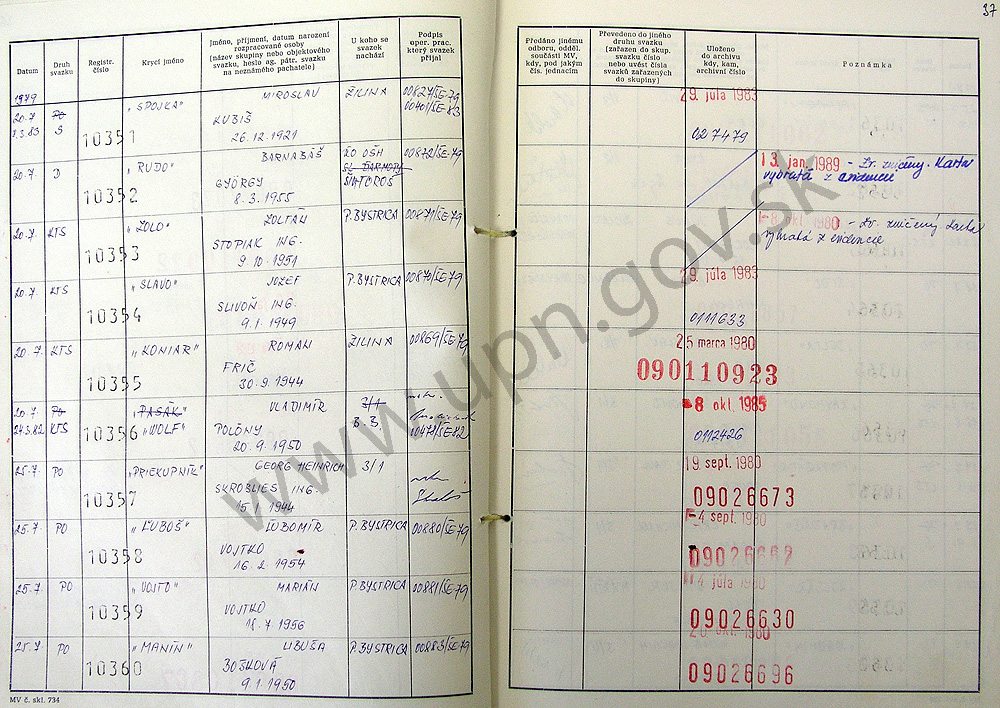 37
Datum
Druh svazku
Registr. číslo
Krycí jméno
Jméno, příjmení, datum narození
rozpracované osoby
(název skupiny nebo objektového
svazku, heslo ag. pátr. svazku
na neznámého pachatele)
U koho se
svazek
nachází
Podpis
oper. prac.
který svazek
přijal
Předáno jinému
odboru, odděl.
součásti MV,
kdy, pod jakým
čís. jednacím
Převedeno do jiného
druhu svazku
(zařazen do skup.
svazku číslo
nebo uvést čísla
svazků zařazených
do skupiny)
Uloženo
do archivu
kdy, kam,
archivní číslo
Poznámka
1979
20.7 PO 10351 „SPOJKA" MIROSLAV ŽILINA 00827/SE-79
3.3.83 S KUBIŠ 00401/SE-83
26.12.1921
29. júla 1983
027479
20.7 D 10352 „RUDO" BARNABÁŠ 00872/SE-79
GYÖRGY ŠIATOROŠ
8.3.1955
13. jan. 1989 - Zv. zničený. Karta
vybratá z evidencie
20.7. KTS 10353 „ZOLO" ZOLTÁN P. BYSTRICA 00871/SE-79
STOPIAK ING.
9.10.1951
-8. okt. 1980 - Zv. zničený Karta
vybratá z evidencie
20.7. KTS 10354 „SLAVO" JOZEF P. BYSTRICA 00870/SE-79
SLIVOŇ ING.
9.1.1949
29. júla 1983
0111633
20.7. KTS 10355 „KONIAR" ROMAN ŽILINA 00869/SE-79
FRIČ
30.9.1944
25 marca 1980
090110923
20.7 PO 10356 „PASÁK" VLADIMÍR 3/1
24.3.82 KTS „WOLF" POLÓNY 3.3. 00472/SE-82
20.9.1950
-8 okt. 1985
0112426
25.7. PO 10357 „PRIEKUPNÍK" GEORG HEINRICH 3/1
SKROBLIES ING.
15.1.1944
19 sept. 1980
09026673
25.7. PO 10358 „ĽUBOŠ" ĽUBOMÍR P. BYSTRICA 00880/SE-79
VOJTKO
16.2.1954
-4 sept. 1980
25.7. PO 10359 „VOJTO" MARIÁN P. BYSTRICA 00881/SE-79
VOJTKO
18.7.1956
júla 1980
09026630
25.7 PO 10360 „MANÍN" LIBUŠA P. BYSTRICA 00883/SE-79
BOŠKOVÁ
9.1.1950
okt. 1980
09026696
MV č. skl. 734
www.upn.gov.sk